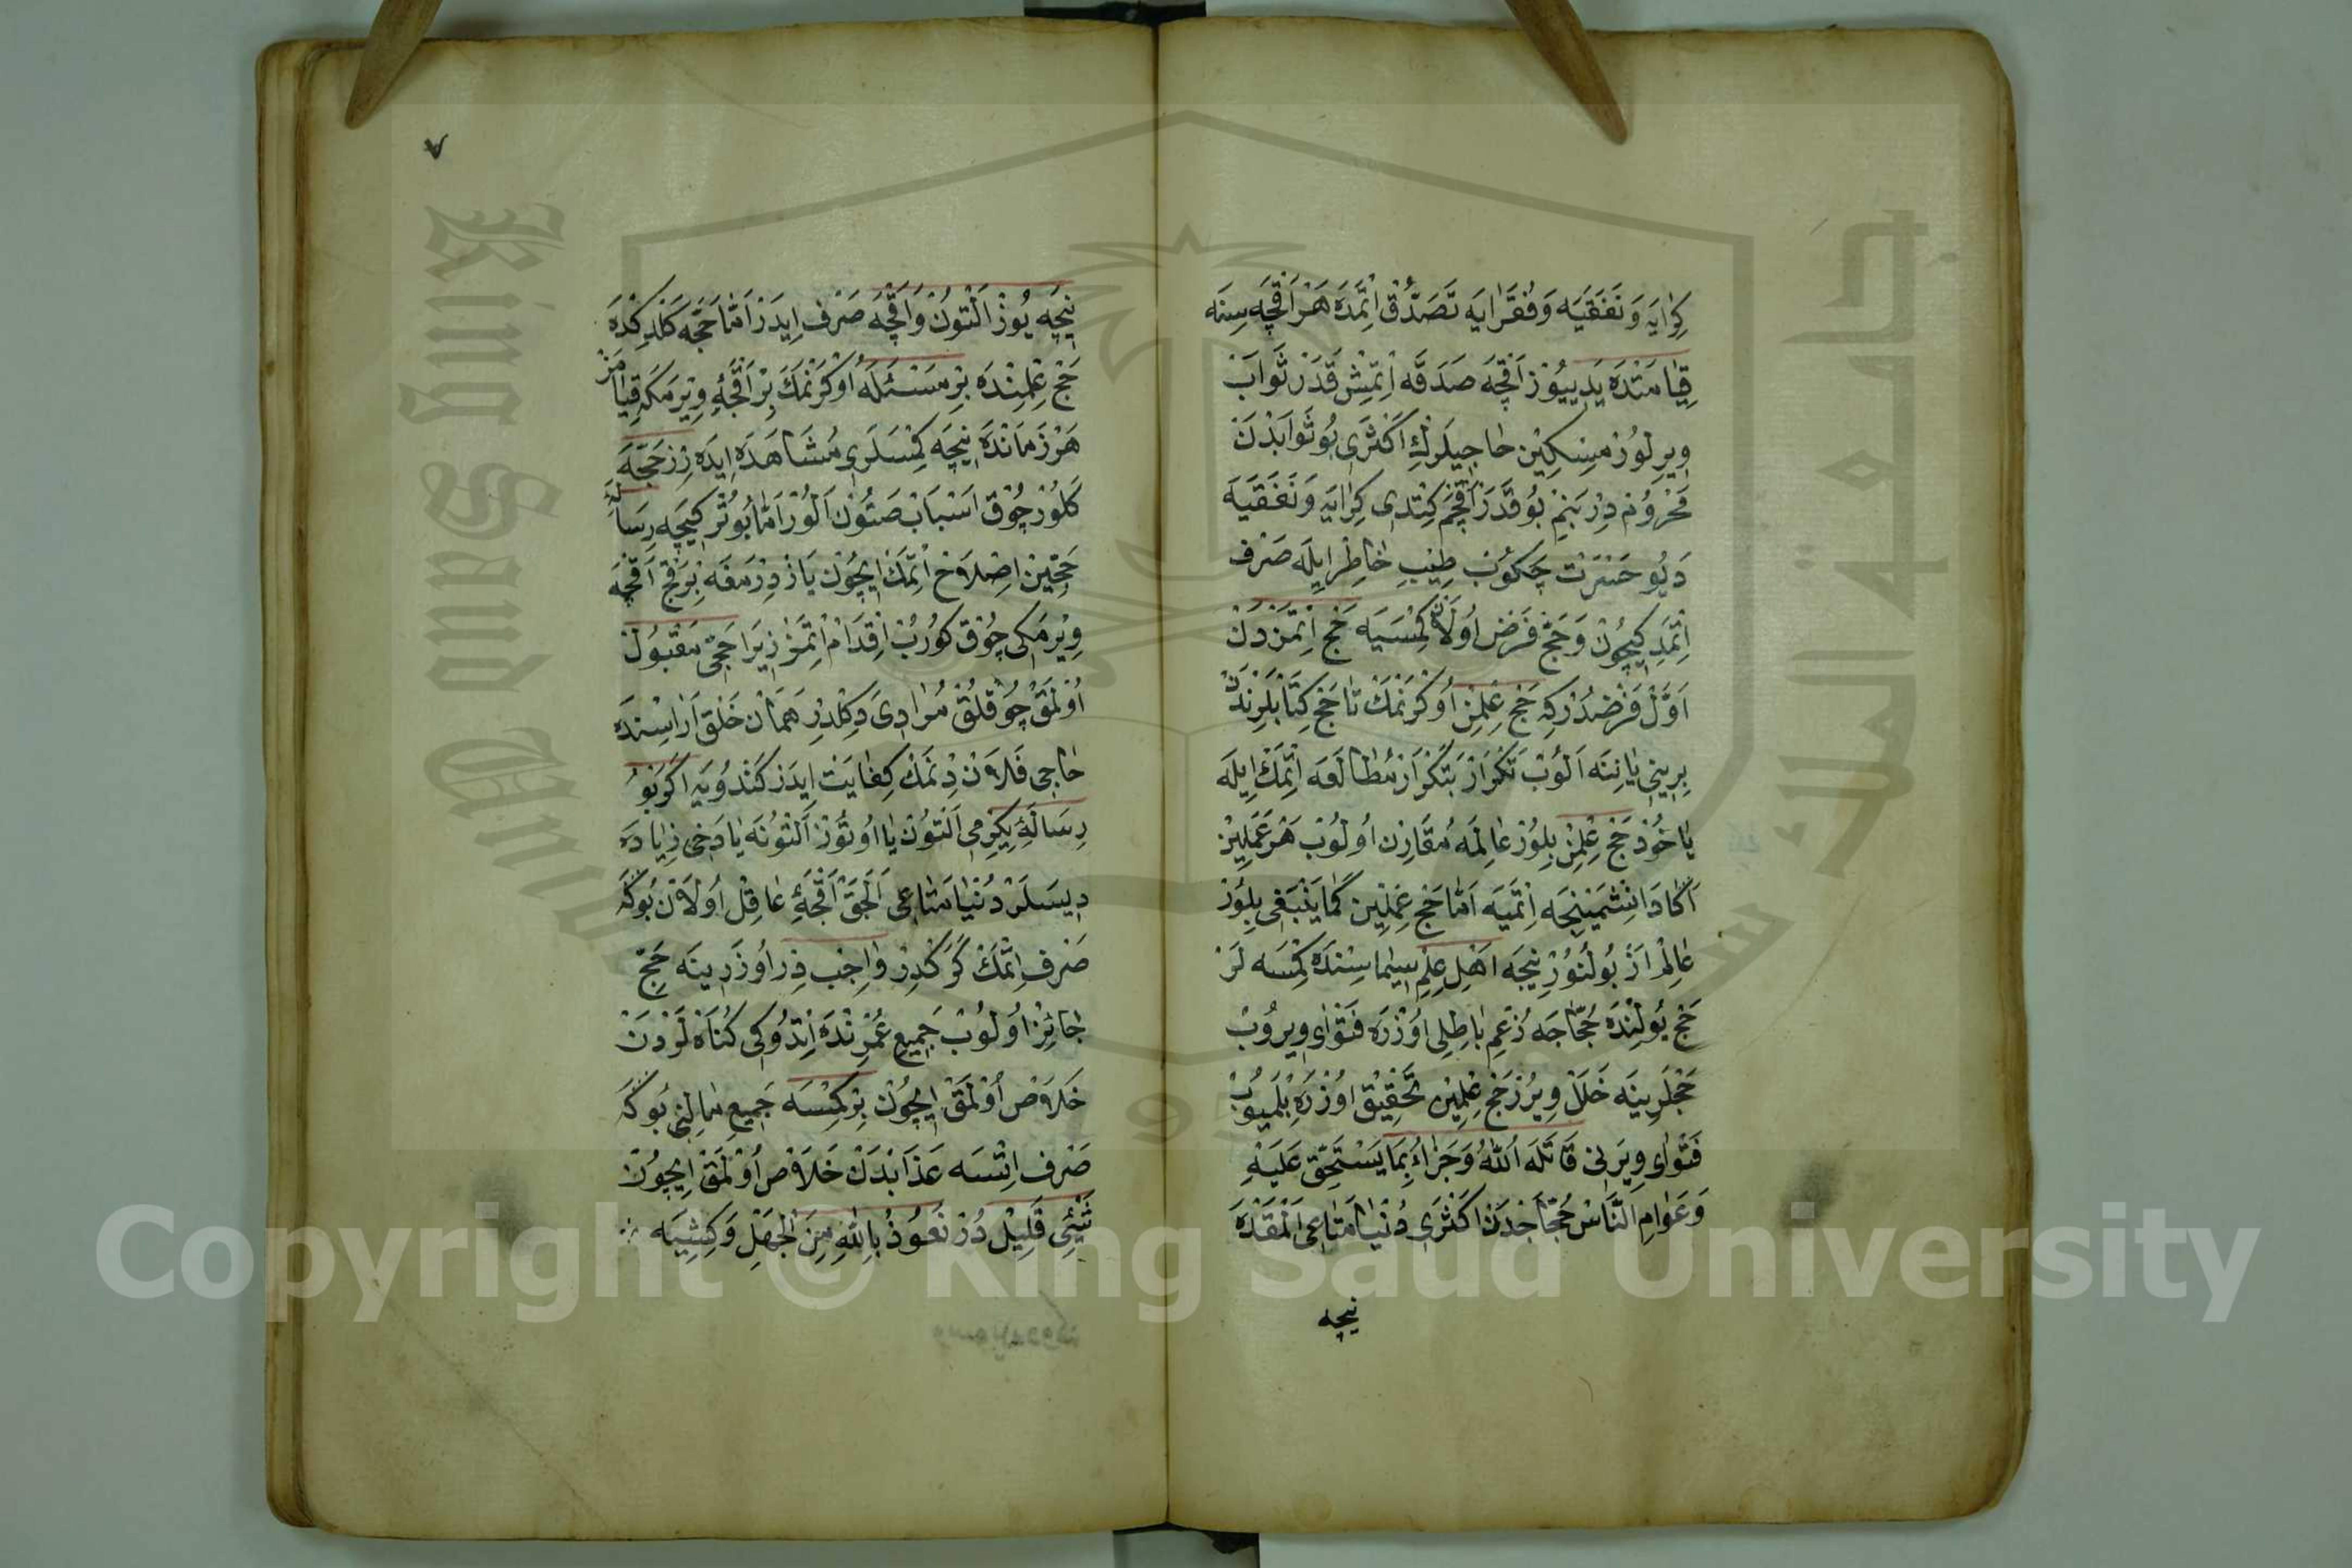 كِرَايَه وَنَفَقَيَه وَفُقَرَايَه تَصَدُّقْ اِتْمَدَه هَرْ اَقْچَه سِنَه
قِيَامَتْدَه يَدِييُوزْ اَقْچَه صَدَقَه اِتْمِشْ قَدَرْ ثَوَابْ
وِيرِلُورْ مِسْكِينْ حَاجِيلَرْكِ اَكْثَرِي بُو ثَوَابْدَنْ
مَحْرُومْ دِرْ بَنِمْ بُوقَدَرْ اَقْچَمْ كِتْدِي كِرَايَه وَنَفَقَيَه
دَيُو حَسْرَتْ چَكُوبْ طِيْبِ خَاطِرْ اِيلَه صَرْف
اِتْمَدِكِيچُونْ وَحَجّ فَرْض اُولَانْ كِمْسَيَه حَجّ اِتْمَزْدَنْ
اَوَّلْ فَرْضْدُرْكِه حَجّ عِلْمِنْ اُوكْرَنْمَكْ تَا حَجّ كِتَابْلَرِنْدَنْ
بِرِينِي يَانِنَه اَلُوبْ تَكْرَارْ بَتَكْرَارْ مُطَالَعَه اِتْمَكْ اِيلَه
يَاخُودْ حَجّ عِلْمِنْ بِلُورْ عَالِمَه مُقَارِنْ اُولُوبْ هَرْ عَمَلِينْ
اَكَا دَانِشْمَيِنْجَه اِتْمَيَه اَمَّا حَجّ عِلْمِيْن كَمَا يَنْبَغِي بِلُورْ
عَالِمْ اَزْ بُولْنُورْ نِيجَه اَهْلِ عِلْم سِيمَاسِنْدَه كِمْسَه لَرْ
حَجّ يُولِنْدَه حُجَّاجَه زُعْمِ بَاطِلِي اُوزْرَه فَتْوَاي وِيرُوبْ
حَجْلَرِينَه خَلَلْ وِيرُرْ حَجّ عِلْمِيْن تَحْقِيقْ اُوزْرَه بِلْمَيُوبْ
فَتْوَاي وِيرَنِي قَاتَلَه اللهُ وَجَزَاءُ بِمَا يَسْتَحِقّ عَلَيْهِ
وَعَوَامِ النَّاسْ حُجَّاجْدَنْ اَكْثَرِي دُنْيَا مَتَاعِي اَلْمَقْدَه
نيجه
٧
نِيجَه يُوزْ اَلْتُونْ وَاَقْچَه صَرْف اِيدَرْ اَمَّا حَجَّه كَلْدِكْدَه
حَجّ عِلْمِنْدَه بِرْ مَسْئَلَه اُوكْرَنْمَكَ بِرْ اَقْچَه وِيرْمَكَه قِيَامَزْ
هَرْ زَمَانْدَه نِيجَه كِمْسَلَرِي مُشَاهَدَه اِيدَه رِزْ حَجَّه
كَلُورْ چُوقْ اَسْبَابْ صَتُونْ اَلُورْ اَمَّا بُو تُرْكِيجَه رِسَالَه
حَجِّين اِصْلَاح اِتْمَكْ اِيچُونْ يَازْدِرْمَغَه بِرْقَچْ اَقْچَه
وِيرْمَكِي چُوق كُورُبْ اِقْدَامْ اِتْمَزْ زِيرَا حَجِّي مَقْبُولْ
اُولْمَقْ چُوقْلُقْ مُرَادِي دَكِلْدِرْ هَمَانْ خَلْقْ اَرَاسِنْدَه
حَاجِي فَلَانْ دِنْمَكْ كِفَايَتْ اِيدَرْ كَنْدُويَه اَكَرْ بُو
رِسَالَه يِكِرْمِي اَلْتُونْ يَا اُوتُوزْ اَلْتُونَه يَا دَخِي زِيَادَه
دِيسَلَرْ دُنْيَا مَتَاعِي اَلَجَقْ اَقْچَه يِ عَاقِلْ اُولَانْ بُوكَه
صَرْف اِتْمَكْ كَرَكْدِرْ وَاجِبْ دِرْ اُوزَرِينَه حَجّ
جَائِزْ اُولُوبْ جَمِيعِ عُمْرِنْدَه اِتْدُوكِي كُنَاه لَرْدَنْ
خَلَاصْ اُولْمَقْ اِيچُونْ بِرْ كِمْسَه جَمِيعِ مَالِنِي بُوكَه
صَرْف اِتْسَه عَذَابْدَنْ خَلَاصْ اُولْمَقْ اِيچُونْ
شَيْئِ قَلِيلْ دُرْ نَعُوذُ بِاللهِ مِنَ الْجَهْلِ وَكِشِيَه
Copyright © King Saud University